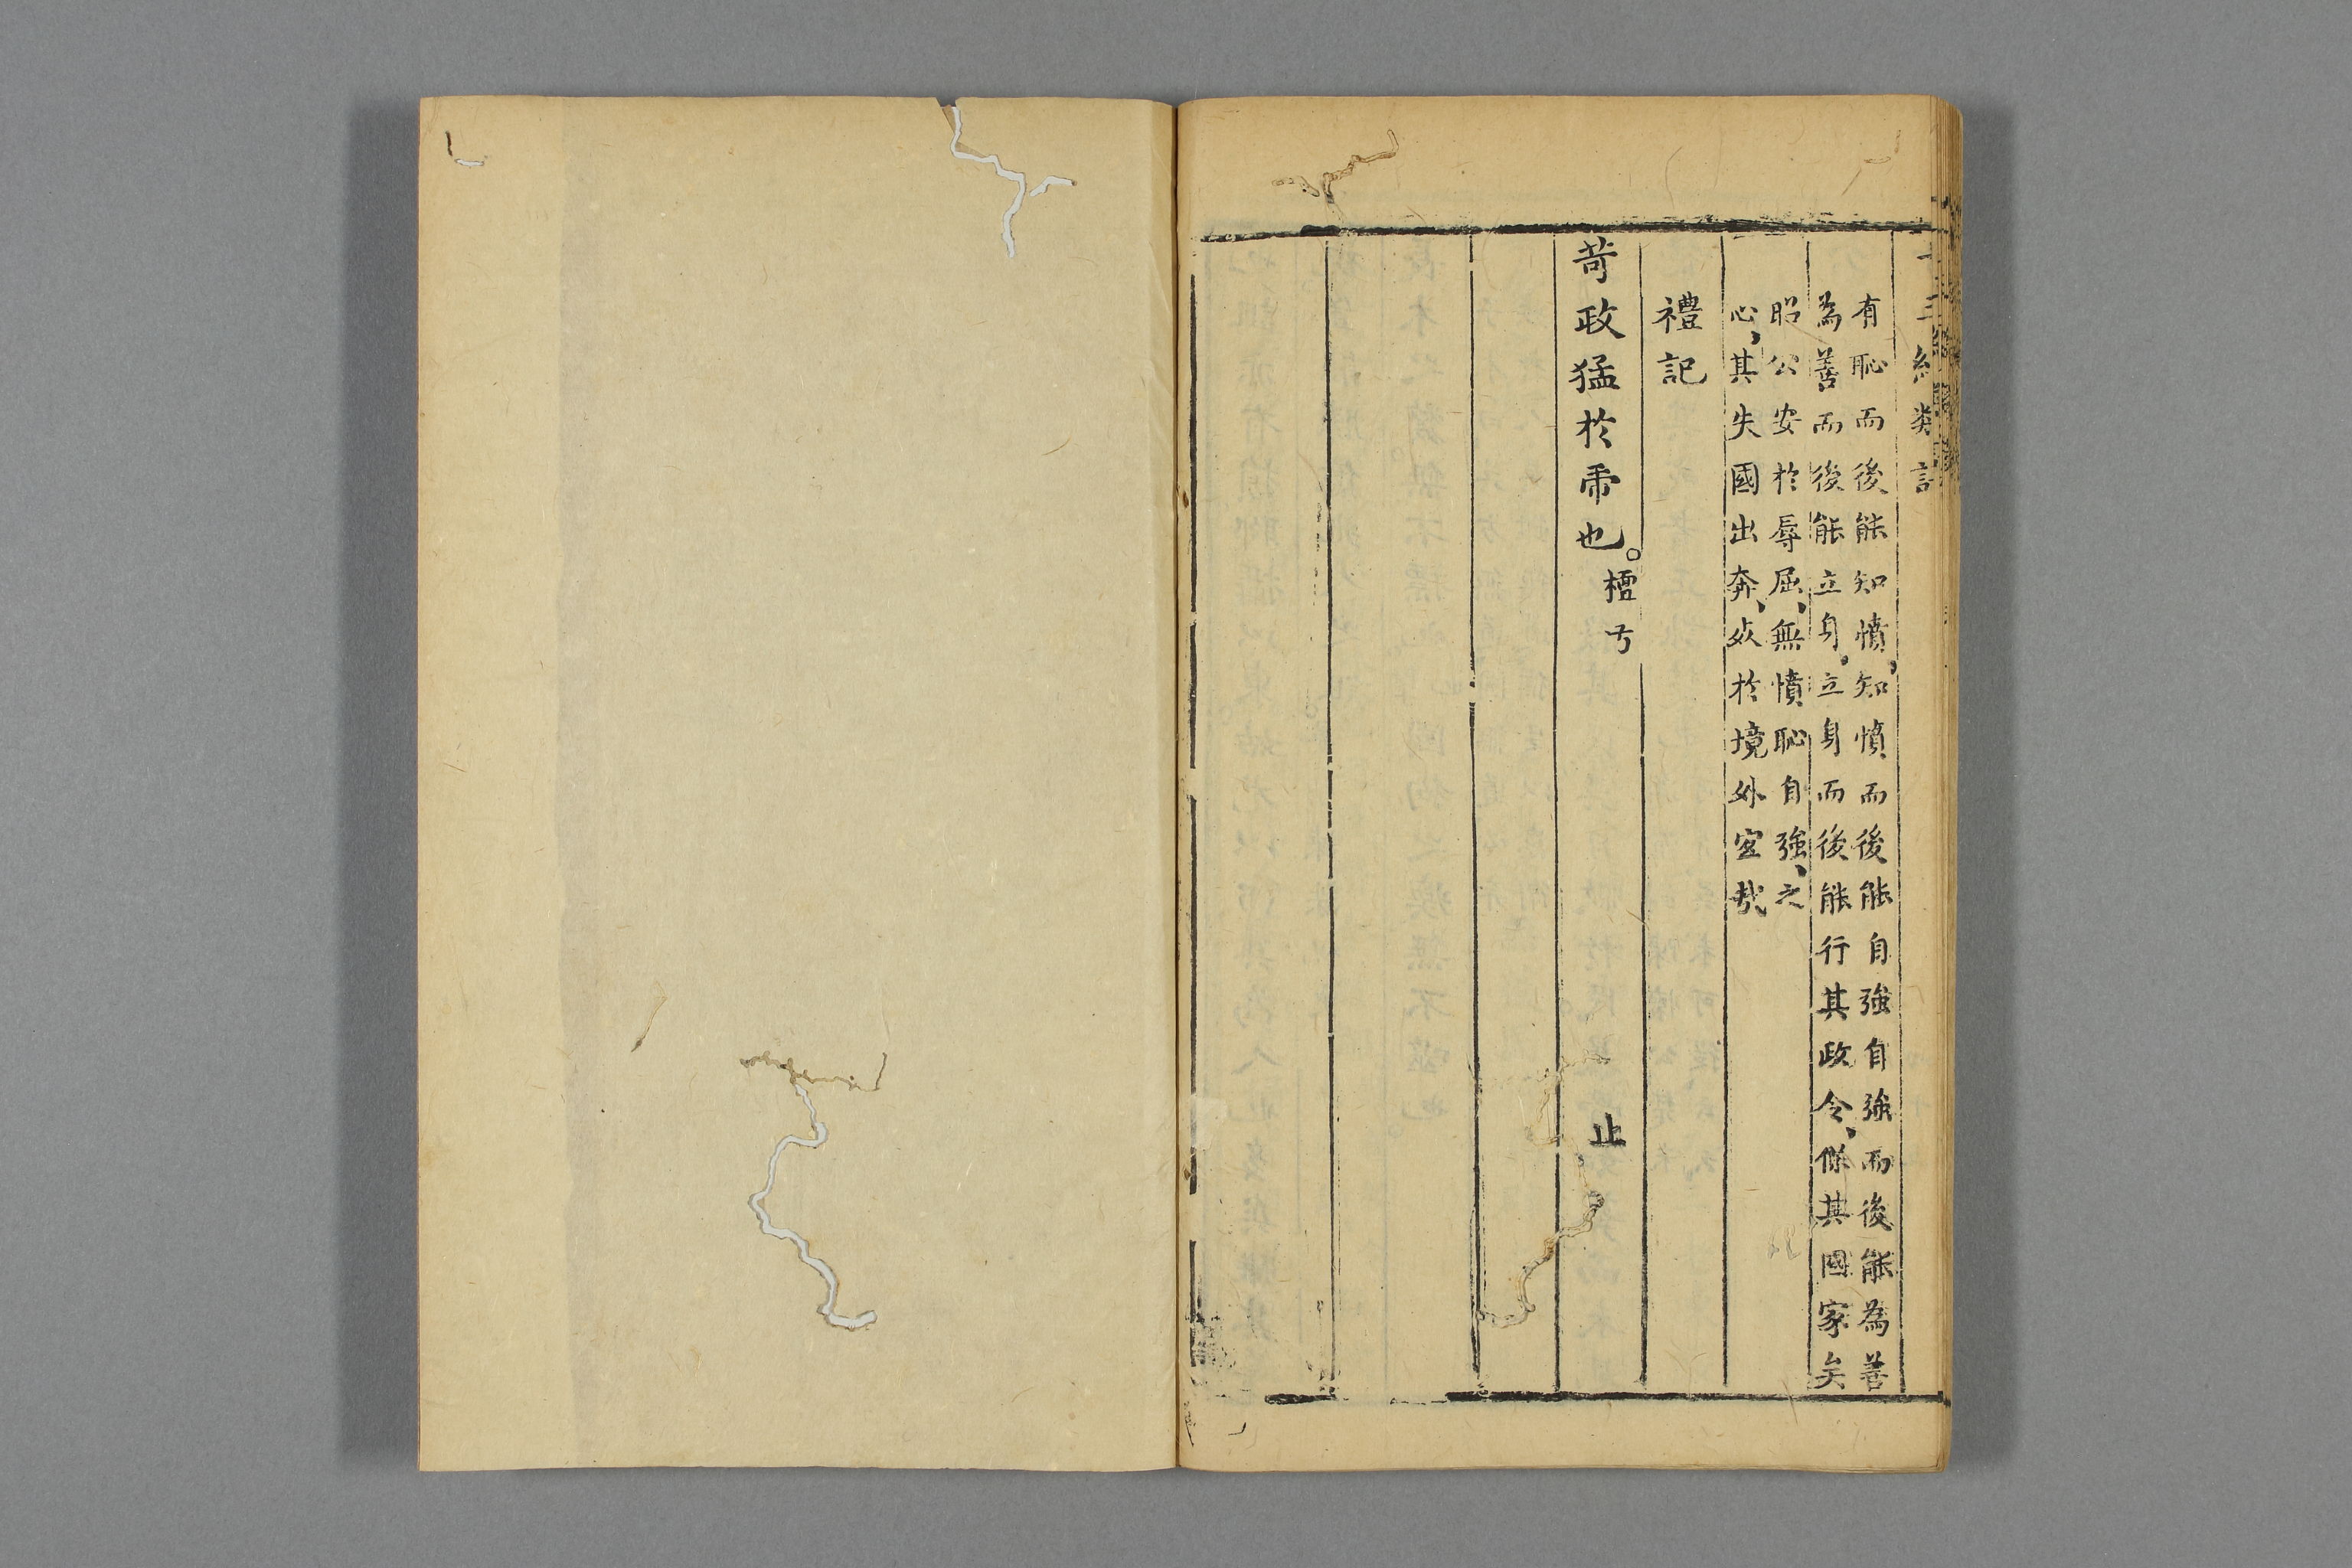 十三經類語
有恥而後能知憤、知憤而後能自強自強而後能為善
為善而後能立身、立身而後能行其政令、保其國家矣
昭公安於辱屈、無憤恥自強、之
心、其失國出奔、死於境外宜哉
禮記
苛政猛於乕也。檀弓
止